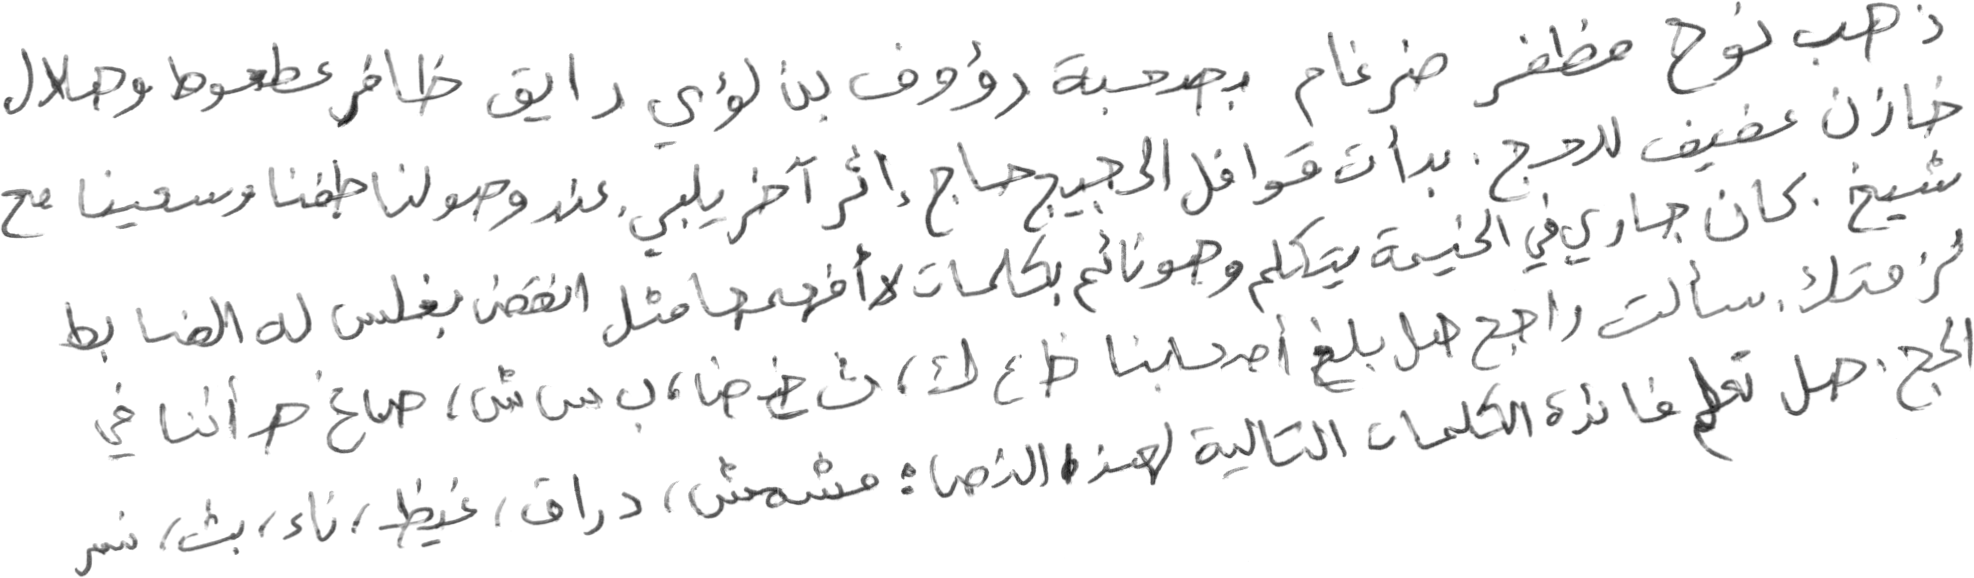 ذهب نوح مظفر ضرغام بصحبة رؤوف بن لؤي رايق ظافر عطعوط وهلال
خازن عفيف للحج. بدأت قوافل الحجيج حاج إثر آخر يلبي. عند وصولنا طفنا وسعينا مع
شيخ. كان جاري في الخيمة يتكلم وهو نائم بكلمات لا أفهمها مثل انقض بغلس له الضابط
لزمتك. سألت راجح هل بلغ أصحابنا ظ ع ك، ث خ ض، ب س ش، صاغ هـ أننا في
الحج. هل تعلم فائدة الكلمات التالية لهذا النص: مشمش، دراق، غيظ، ناء، بث، نسر